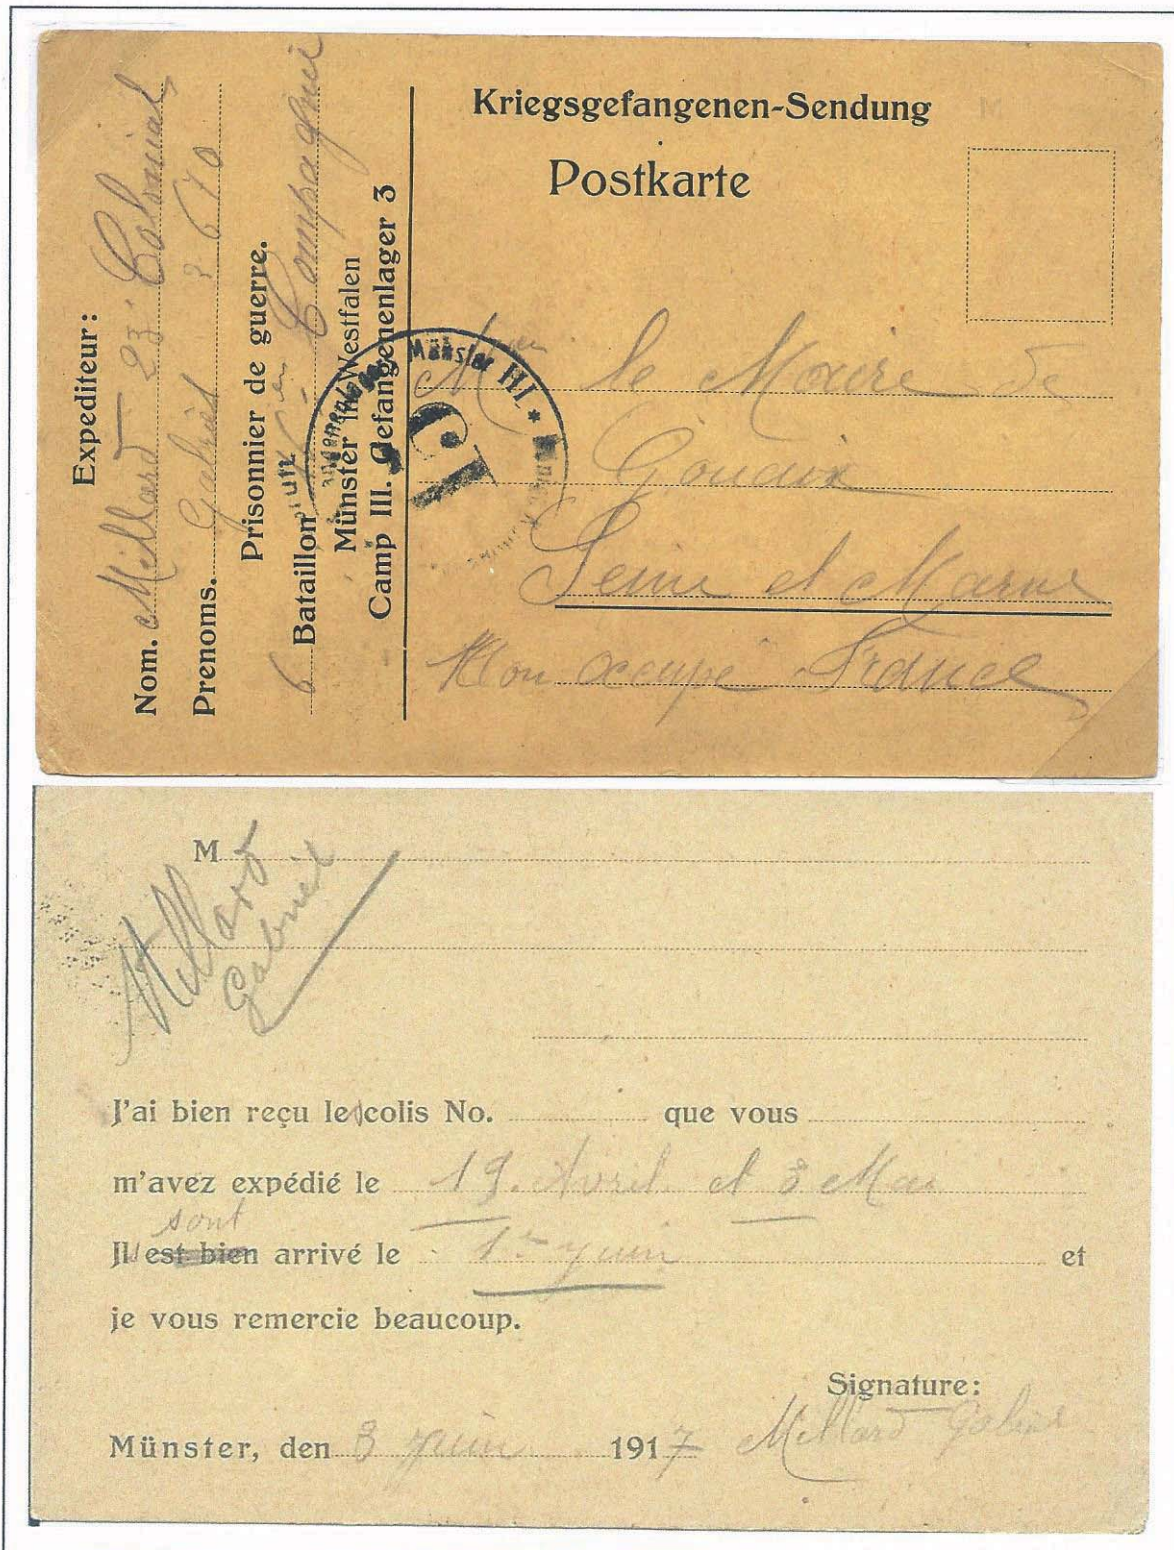 Kriegsgefangenen-Sendung
Postkarte
Expediteur:
Nom. Millard 23e Colonial
Prenoms. Gabriel 2670
Prisonnier de guerre.
6 Bataillon Compagnie
Münster in Westfalen
Camp III. Gefangenenlager 3
Münster III. *
15
le Maire de
Gouaix
Seine et Marne
Non occupé France
M
Millard
Gabriel
J'ai bien reçu les colis No. que vous
m'avez expédié le 19. Avril et 8 Mai
sont
Ils est bien arrivé le 1er juin et
je vous remercie beaucoup.
Signature:
Münster, den 3 juin 1917 Millard Gabriel